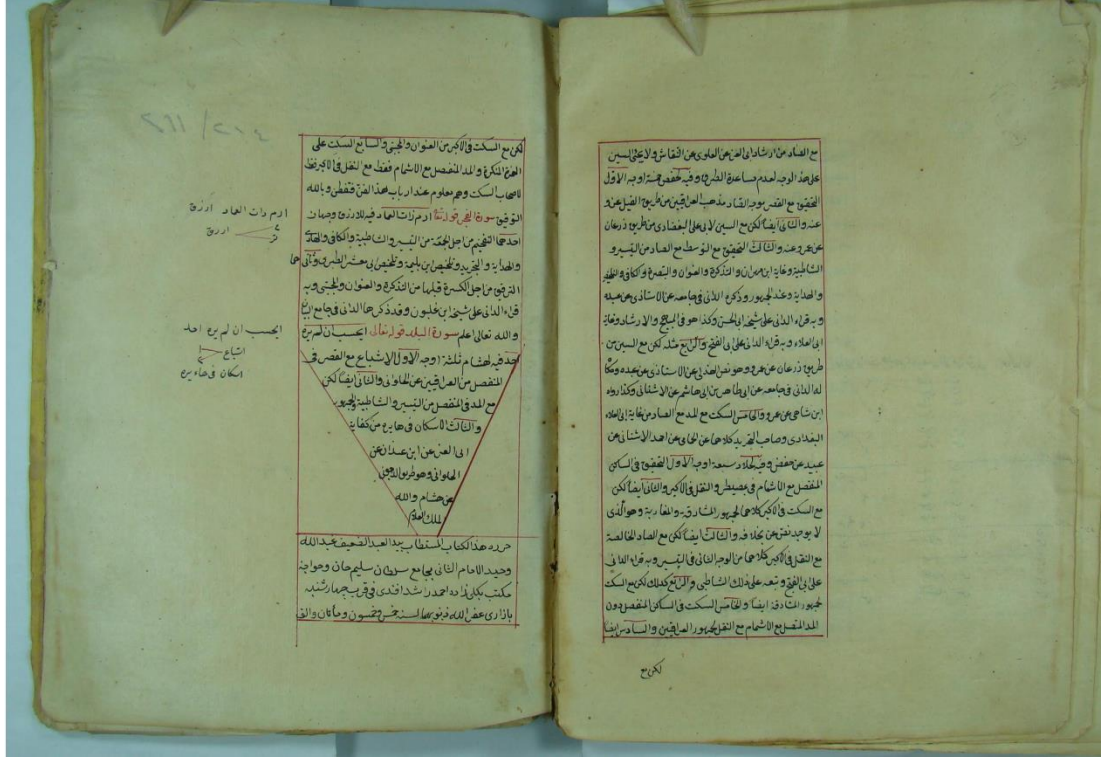 مع الصاد من ارشاد ابى العز عن العلوى عن النقاش ولا يجئ السين
على هذ الوجه لعدم مساعدة الطرق وفيه لحفص خمسة اوجه الاول
التحقيق مع القصر بوجه الصاد مذهب العراقيين من طريق الفيل عن و
عنه والثانى ايضاً لكن مع السين لابى على البغدادى من طريق ذرعان
عن عمرو عنه والثالث التحقيق مع التوسط مع الصاد من التيسير و
الشاطبية وغاية ابن مهران والتذكرة والعنوان والتبصرة والكافى والتلخيص
والهداية وعند الجمهور وذكره الدانى فى جامعه عن الاستاذى عن عبيد
وبه قراء الدانى على شيخه ابى الحسن وكذا هو فى المبهج والارشاد وغاية
ابى العلاء وبه قراء الدانى على ابى الفتح والرابع مثله لكن مع السين من
طريق ذرعان عن عمرو وهو نص الهذلى عن الاستاذى عن عبيده وحكاه
له الدانى فى جامعه عن ابى طاهر بن ابى هاشم عن الاشنانى وكذا رواه
ابن شاهى عن عمرو والخامس السكت مع المد مع الصاد من غاية ابى العلاء
البغدادى وصاحب التجريد كلاهما عن الحامى عن احمد الاشنانى عن
عبيد عن حفص وفيه لخلاد سبعة اوجه الاول التحقيق فى الساكن
المنفصل مع الاشمام فى بمصيطر والنقل فى الاكبر والثانى ايضاً لكن
مع السكت فى الاكبر كلاهما لجمهور المشارقة والمغاربة وهو الذى
لا يوجد نص عن بخلافه والثالث ايضاً لكن مع الصاد الخالصة
مع النقل فى الاكبر كلاهما من الوجه الثانى فى التيسير وبه قراء الدانى
على ابى الفتح وتبعه على ذلك الشاطبى والرابع كذلك لكن مع السكت
لجمهور المشارقة ايضاً والخامس السكت فى الساكن المنفصل دون
المد المتصل مع الاشمام مع النقل لجمهور العراقيين والسادس ايضاً
لكن مع
لكن مع السكت فى الاكبر من العنوان والمجتبى والسابع السكت على
الهمزة المنكرة والمد المنفصل مع الاشمام فقط مع النقل فى الاكبر فقط
لاصحاب السكت وهم معلوم عند ارباب هذا الفن فتفطن وبالله
التوفيق سورة الفجر قوله تعالى ارم ذات العماد فيه للازرق وجهان
احدهما التفخيم من اجل العجمة من التيسير والشاطبية والكافى والهادى
والهداية والتجريد وتلخيص ابن بليمة وتلخيص ابى معشر الطبرى وثانيهما
الترقيق من اجل الكسرة قبلها من التذكرة والعنوان والمجتبى وبه
قراء الدانى على شيخه ابن غلبون وقد ذكرهما الدانى فى جامع البيان
والله تعالى اعلم سورة البلد قوله تعالى ايحسب ان لم يره
احد فيه لهشام ثلثة اوجه الاول الاشباع مع القصر فى
المنفصل من العراقيين عن الحلوانى والثانى ايضاً لكن
مع المد فى المنفصل من التيسير والشاطبية والجمهور
والثالث الاسكان فى هايره من كفاية
ابى العز عن ابن عبدان عن
الحلوانى وهو طريق الداجونى
عن هشام والله
الملك العلام
حرره هذا الكتاب المستطاب بيد العبد الضعيف عبد الله
وحيد الامام الثانى بجامع سلطان سليم خان وخواجه
مكتب بكلى زاده احمد رشد افندى فى قرب چهارشنبه
بازارى عفى الله ذنوبهما لسنة خمس وخمسون ومأتان والف
٢٦١/٢١٤
ارم ذات العماد ازرق
ازرق
ايحسب ان لم يره احد
اشباع
اسكان فى هاء يره